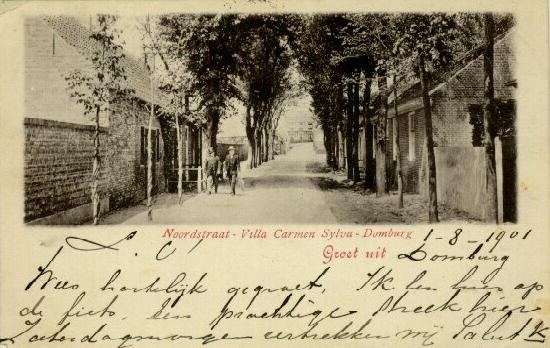 Noordstraat - Villa Carmen Sylva - Domburg
L. C! 1-8-1901
Groet uit Domburg
Wees hartelijk gegroet, Ik ben hier op
de fiets, een prachtige streek hier
Zaterdagmorgen vertrekken wij Saluut